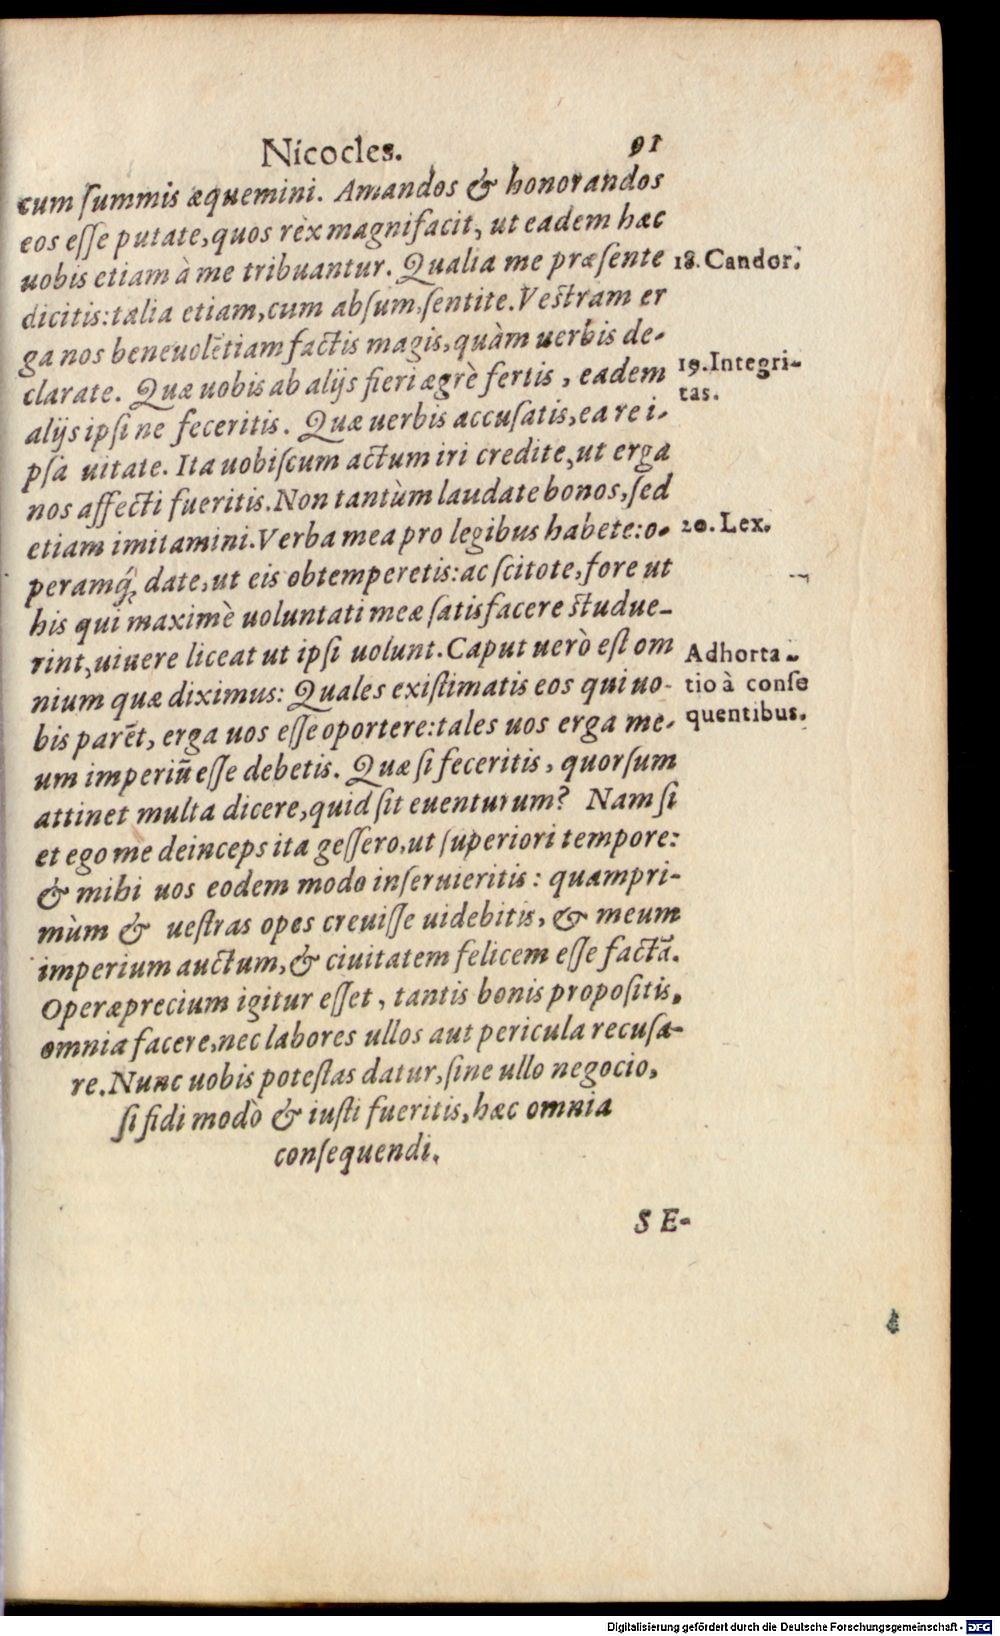 Nicocles. 91
cum ſummis æquemini. Amandos & honorandos
eos eſſe putate, quos rèx magnifacit, ut eadem hæc
uobis etiam à me tribuantur. Qualia me præſente
18. Candor.
dicitis: talia etiam, cum abſum, ſentite. Veſtram er
ga nos beneuolẽtiam factis magis, quàm uerbis de-
clarate. Quæ uobis ab alijs fieri ægrè fertis, eadem
19. Integri-
tas.
alijs ipſi ne feceritis. Quæ uerbis accuſatis, ea re i-
pſa uitate. Ita uobiſcum actum iri credite, ut erga
nos affecti fueritis. Non tantùm laudate bonos, ſed
etiam imitamini. Verba mea pro legibus habete: o-
20. Lex.
peramq́; date, ut eis obtemperetis: ac ſcitote, fore ut
his qui maximè uoluntati meæ ſatisfacere ſtudue-
rint, uiuere liceat ut ipſi uolunt. Caput uerò eſt om
nium quæ diximus: Quales exiſtimatis eos qui uo-
Adhorta-
tio à conſe
quentibus.
bis parẽt, erga uos eſſe oportere: tales uos erga me-
um imperiũ eſſe debetis. Quæ ſi feceritis, quorſum
attinet multa dicere, quid ſit euenturum? Nam ſi
et ego me deinceps ita geſſero, ut ſuperiori tempore:
& mihi uos eodem modo inſeruieritis: quampri-
mùm & ueſtras opes creuiſſe uidebitis, & meum
imperium auctum, & ciuitatem felicem eſſe factã.
Operæprecium igitur eſſet, tantis bonis propoſitis,
omnia facere, nec labores ullos aut pericula recuſa-
re. Nunc uobis poteſtas datur, ſine ullo negocio,
ſi fidi modò & iuſti fueritis, hæc omnia
conſequendi.
SE-
Digitalisierung gefördert durch die Deutsche Forschungsgemeinschaft - DFG